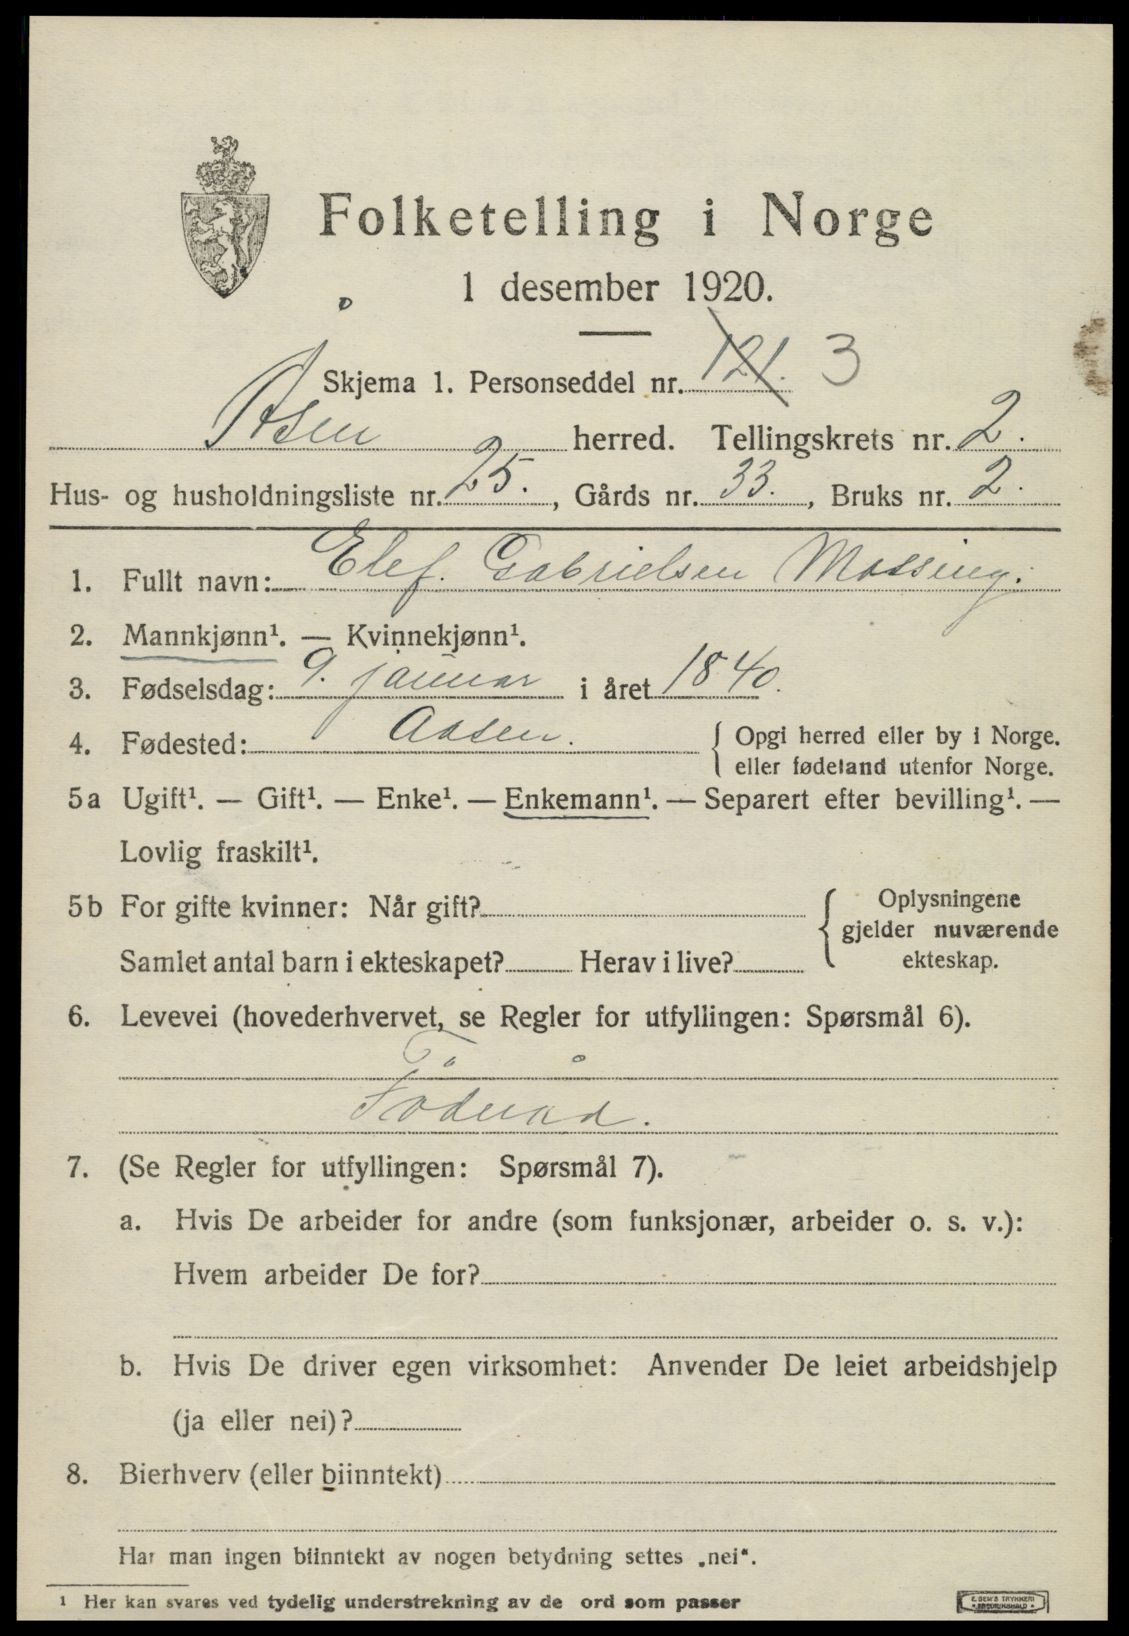 Folketelling i Norge
1 desember 1920.
Skjema 1. Personseddel nr. 121. 3
Åsen herred. Tellingskrets nr. 2.
Hus- og husholdningsliste nr. 25., Gårds nr. 33., Bruks nr. 2.
1. Fullt navn: Elef. Gabrielsen Mossing.
2. Mannkjønn¹. — Kvinnekjønn¹.
3. Fødselsdag: 9. januar i året 1840.
4. Fødested: Aasen. { Opgi herred eller by i Norge,
eller fødeland utenfor Norge.
5a Ugift¹. — Gift¹. — Enke¹. — Enkemann¹. — Separert efter bevilling¹. —
Lovlig fraskilt¹.
5b For gifte kvinner: Når gift?
Samlet antal barn i ekteskapet? Herav i live?
{ Oplysningene
gjelder nuværende
ekteskap.
6. Levevei (hovederhvervet, se Regler for utfyllingen: Spørsmål 6).
Föderåd.
7. (Se Regler for utfyllingen: Spørsmål 7).
a. Hvis De arbeider for andre (som funksjonær, arbeider o. s. v.):
Hvem arbeider De for?
b. Hvis De driver egen virksomhet: Anvender De leiet arbeidshjelp
(ja eller nei)?
8. Bierhverv (eller biinntekt)
Har man ingen biinntekt av nogen betydning settes „nei“.
¹ Her kan svares ved tydelig understrekning av de ord som passer
E. SEM'S TRYKKERI
FREDRIKSHALD